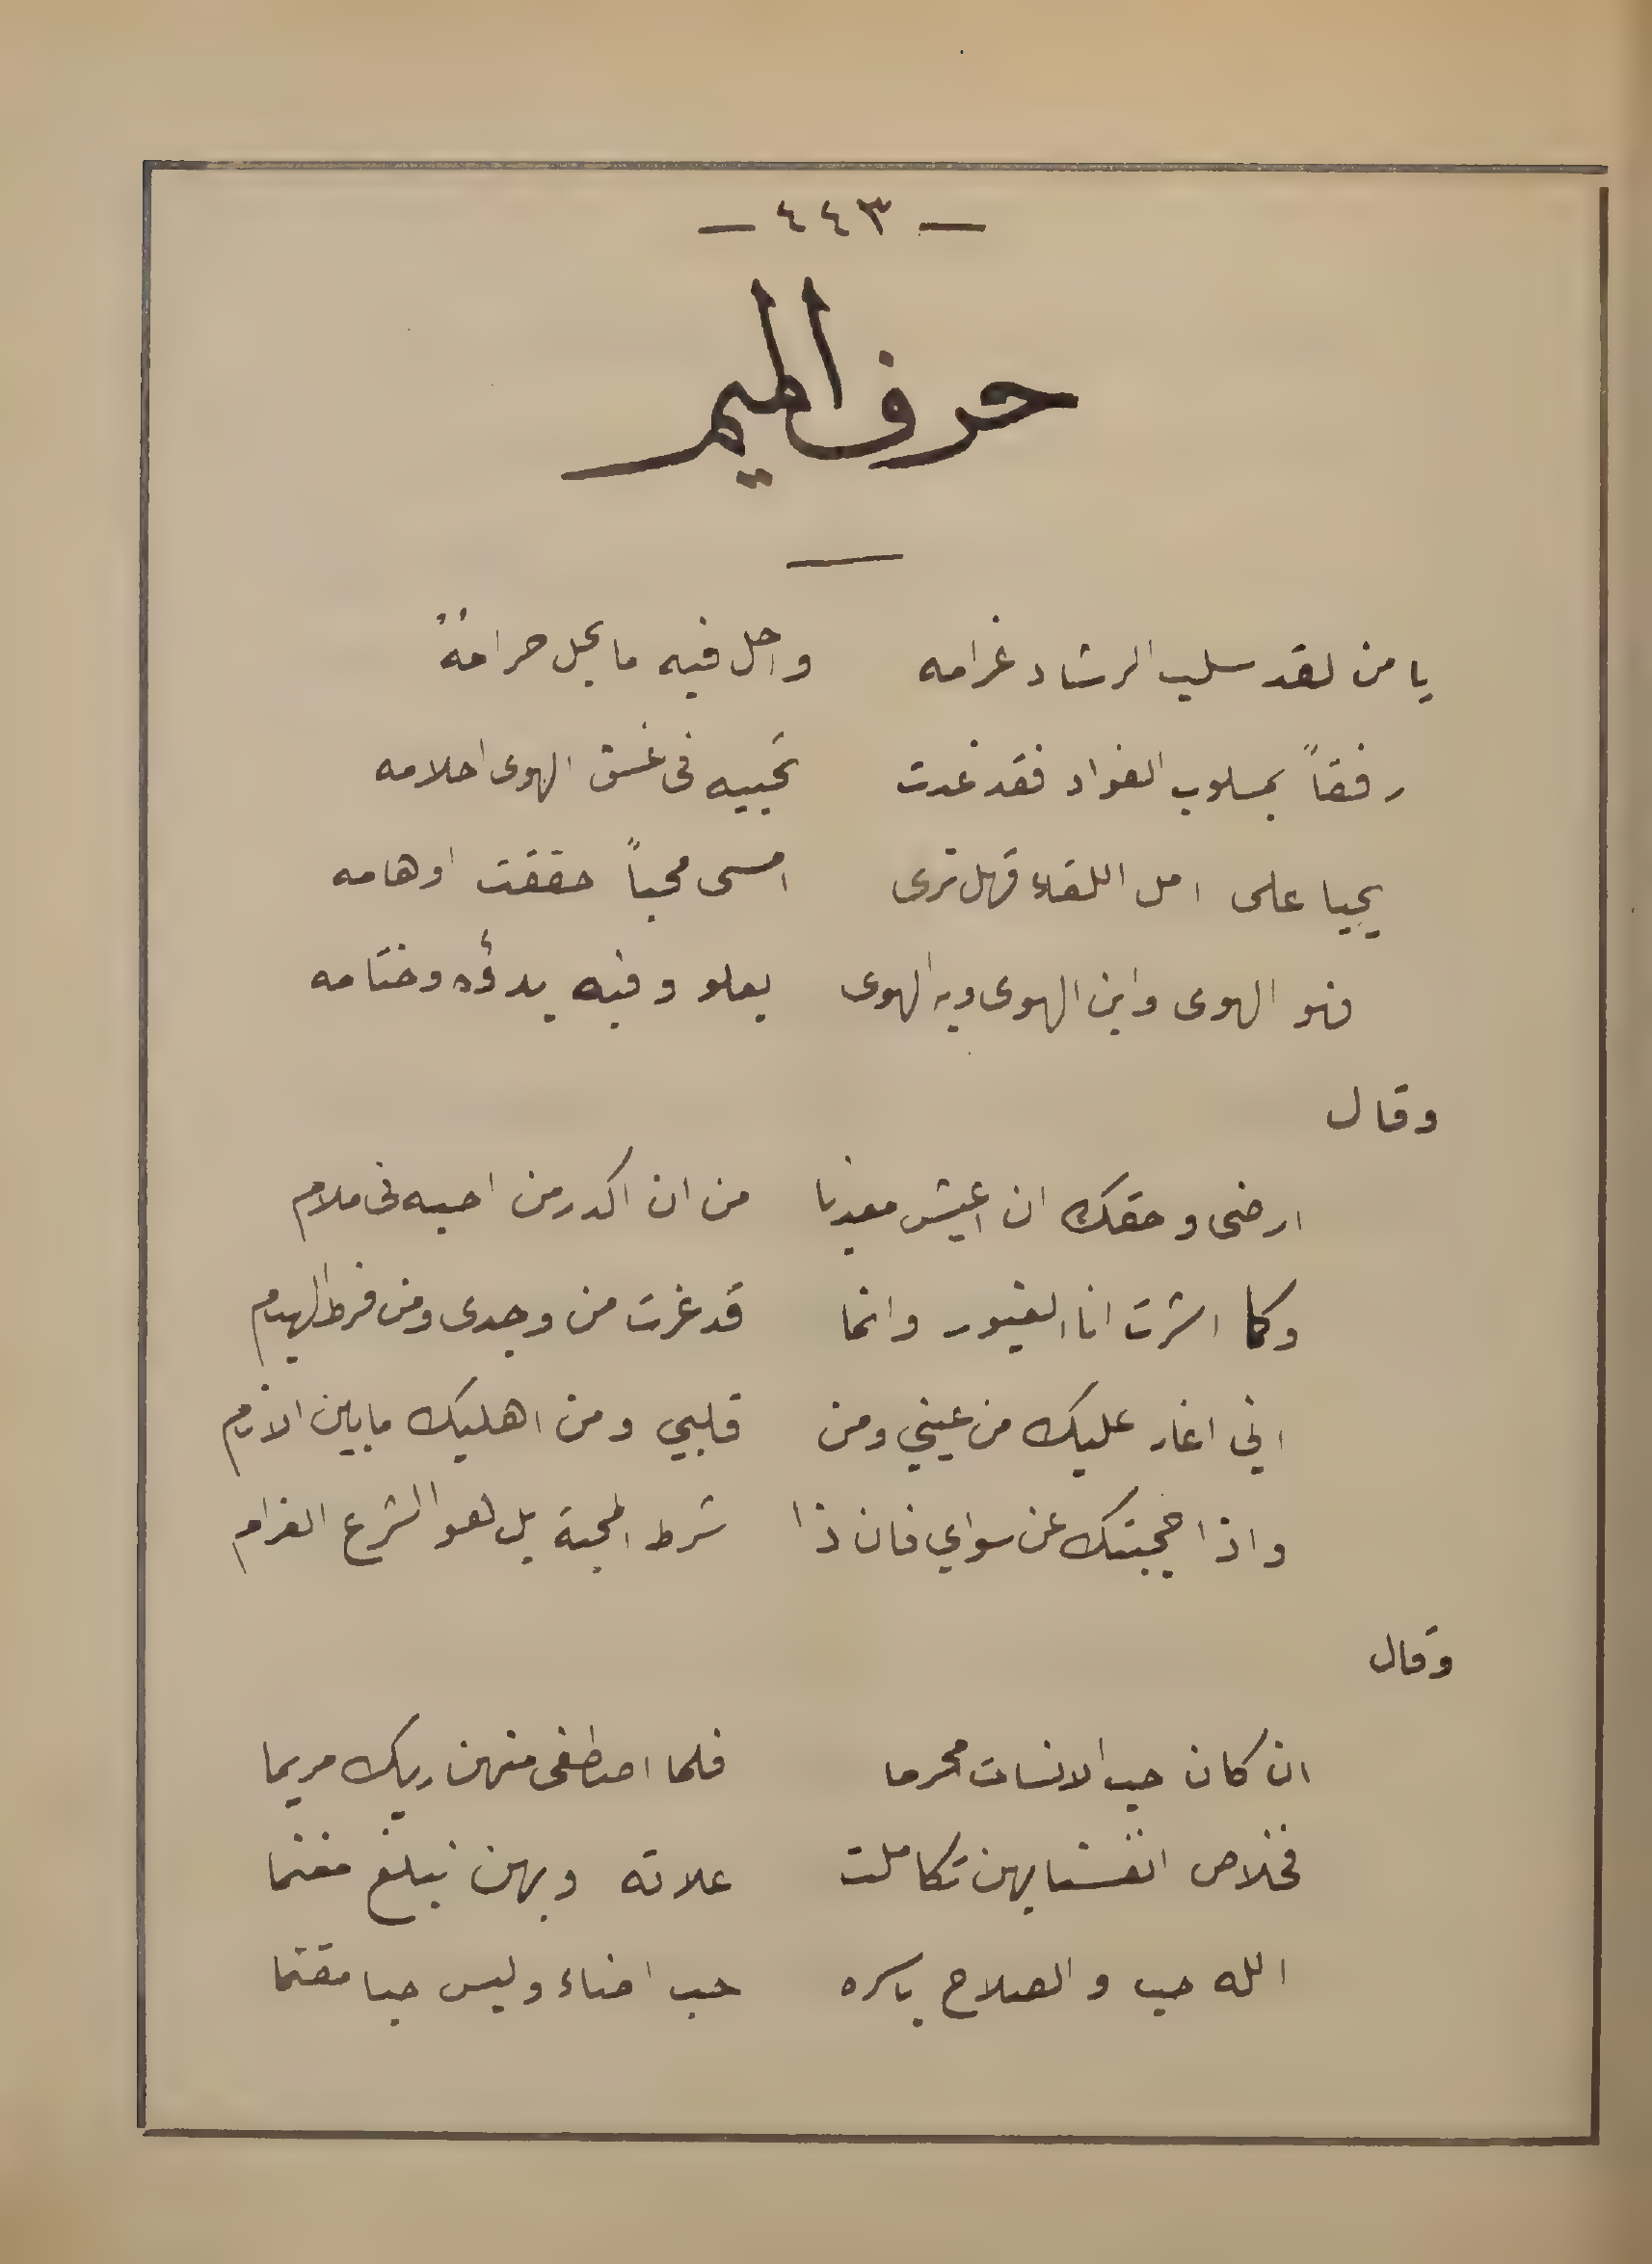 — ٤٤٣ —
حرف الميم
يا من لقد سلب الرشاد غرامه واحل فيه ما يحل حرامهُ
رفقاً بمسلوب الفواد فقد غدت تحييه فى غسق الهوى احلامه
يحيا على امل اللقاء فهل ترى امسى محباً حققت اوهامه
فهو الهوى وابن الهوى وبه الهوى يعلو وفيه بدؤه وختامه
وقال
ارضى وحقك ان اعيش معذبا من ان اكدر من احبه فى ملام
وكما اشرت انا الغيور وانما قد غرت من وجدى ومن فرط الهيام
اني اغار عليك من عيني ومن قلبي ومن اهليك ما بين الانام
واذا حجبتك عن سواي فان ذا شرط المحبة بل هو الشرع الغرام
وقال
ان كان حب الانسات محرما فلما اصطفى منهن ربك مريما
فخلاص انفسنا بهن تكاملت علاته وبهن نبلغ مغنما
الله حب والصلاح باسره حب اضاء وليس حبا مقتما